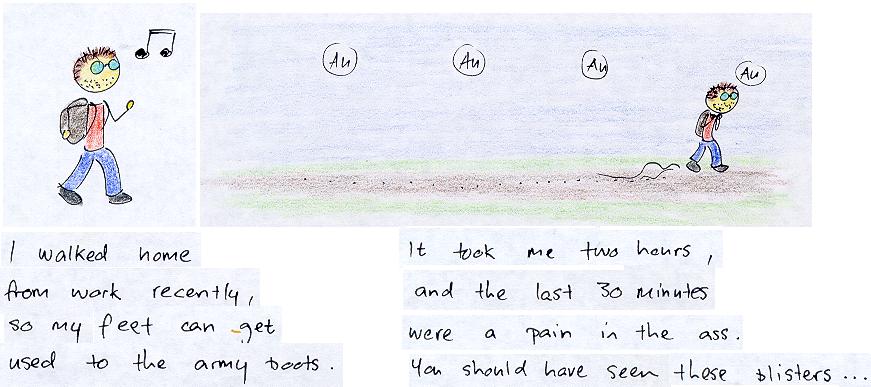 Au Au Au Au
I walked home
from work recently,
so my feet can get
used to the army boots.
It took me two hours,
and the last 30 minutes
were a pain in the ass.
You should have seen these blisters...